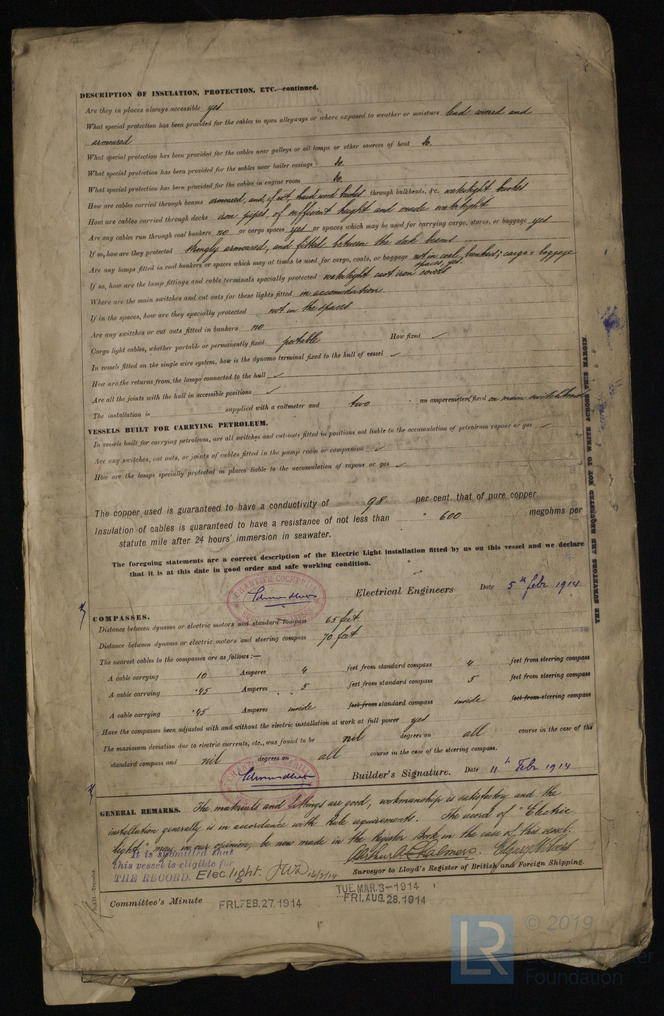 DESCRIPTION OF INSULATION, PROTECTION, ETC.—continued.
Are they in places always accessible yes
What special protection has been provided for the cables in open alleyways or where exposed to weather or moisture lead covered and
armoured
What special protection has been provided for the cables near galleys or oil lamps or other sources of heat do.
What special protection has been provided for the cables near boiler casings do.
What special protection has been provided for the cables in engine room do.
How are cables carried through beams armoured, and, if not, hard wood bushed through bulkheads, &c. watertight bushes
How are cables carried through decks iron pipes, of sufficient height and made watertight
Are any cables run through coal bunkers no or cargo spaces yes or spaces which may be used for carrying cargo, stores, or baggage yes
If so, how are they protected strongly armoured, and fitted between the deck beams
Are any lamps fitted in coal bunkers or spaces which may at times be used for cargo, coals, or baggage not in coal bunkers; cargo & baggage
spaces, yes
If so, how are the lamp fittings and cable terminals specially protected watertight cast iron covers
Where are the main switches and cut outs for these lights fitted in accomodation
If in the spaces, how are they specially protected not in the spaces
Are any switches or cut outs fitted in bunkers no
Cargo light cables, whether portable or permanently fixed portable How fixed ✓
In vessels fitted on the single wire system, how is the dynamo terminal fixed to the hull of vessel ✓
How are the returns from the lamps connected to the hull ✓
Are all the joints with the hull in accessible positions ✓
The installation is supplied with a voltmeter and two an amperemeter, fixed on main switchboard
VESSELS BUILT FOR CARRYING PETROLEUM.
In vessels built for carrying petroleum, are all switches and cut-outs fitted in positions not liable to the accumulation of petroleum vapour or gas ✓
Are any switches, cut outs, or joints of cables fitted in the pump room or companion ✓
How are the lamps specially protected in places liable to the accumulation of vapour or gas ✓
The copper used is guaranteed to have a conductivity of 98 per cent. that of pure copper.
Insulation of cables is guaranteed to have a resistance of not less than 600 megohms per
statute mile after 24 hours' immersion in seawater.
The foregoing statements are a correct description of the Electric Light installation fitted by us on this vessel and we declare
that it is at this date in good order and safe working condition.
Electrical Engineers Date 5th Febr 1914
COMPASSES.
Distance between dynamo or electric motors and standard compass 65 feet
Distance between dynamo or electric motors and steering compass 70 feet
The nearest cables to the compasses are as follows:—
A cable carrying 10 Amperes 4 feet from standard compass 4 feet from steering compass
A cable carrying .45 Amperes 5 feet from standard compass 5 feet from steering compass
A cable carrying .45 Amperes inside feet from standard compass inside feet from steering compass
Have the compasses been adjusted with and without the electric installation at work at full power yes
The maximum deviation due to electric currents, etc., was found to be nil degrees on all course in the case of the
standard compass and nil degrees on all course in the case of the steering compass.
Builder's Signature. Date 11th Febr 1914
GENERAL REMARKS. The materials and fittings are good, workmanship is satisfactory and the
installation generally is in accordance with Rule requirements. The record of "Electric
light" may, in our opinion, be now made in the Register Book in the case of this vessel.
It is submitted that
this vessel is eligible for
THE RECORD. Elec. light.
Arthur R. Chalmers.
Surveyor to Lloyd's Register of British and Foreign Shipping.
Committee's Minute FRI. FEB. 27. 1914 TUE. MAR. 3-1914
FRI. AUG. 28. 1914
THE SURVEYORS ARE REQUESTED NOT TO WRITE ACROSS THIS MARGIN.
© 2019
LR
Foundation